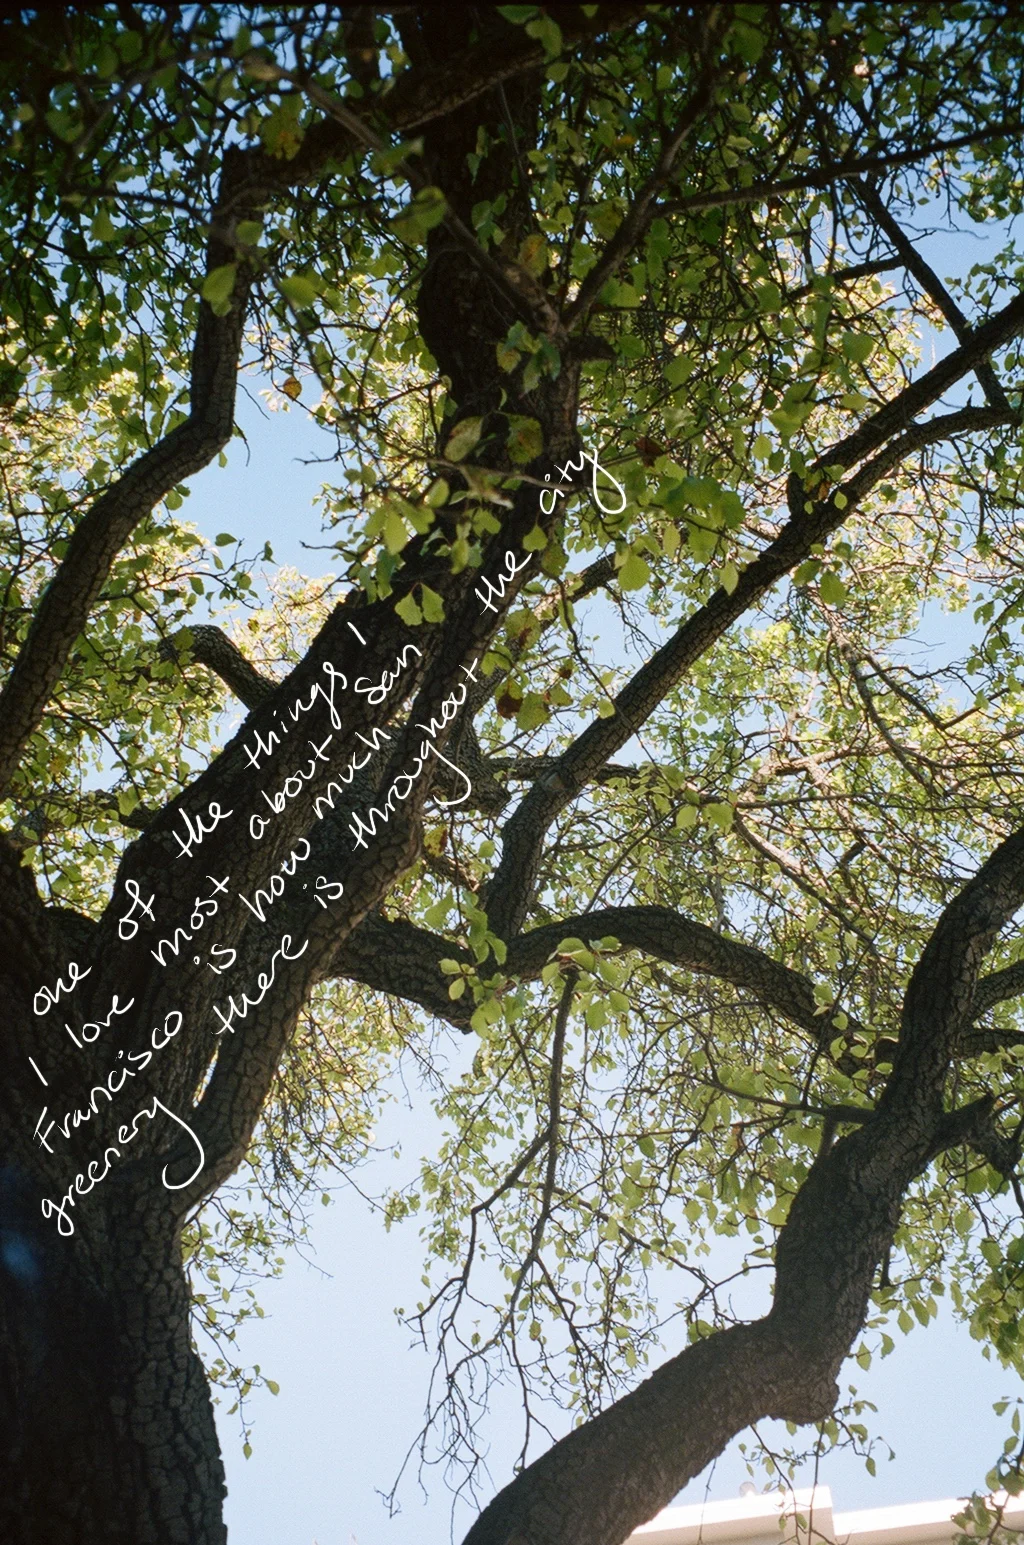 one of the things I
I love most about San
Francisco is how much
greenery there is throughout the city